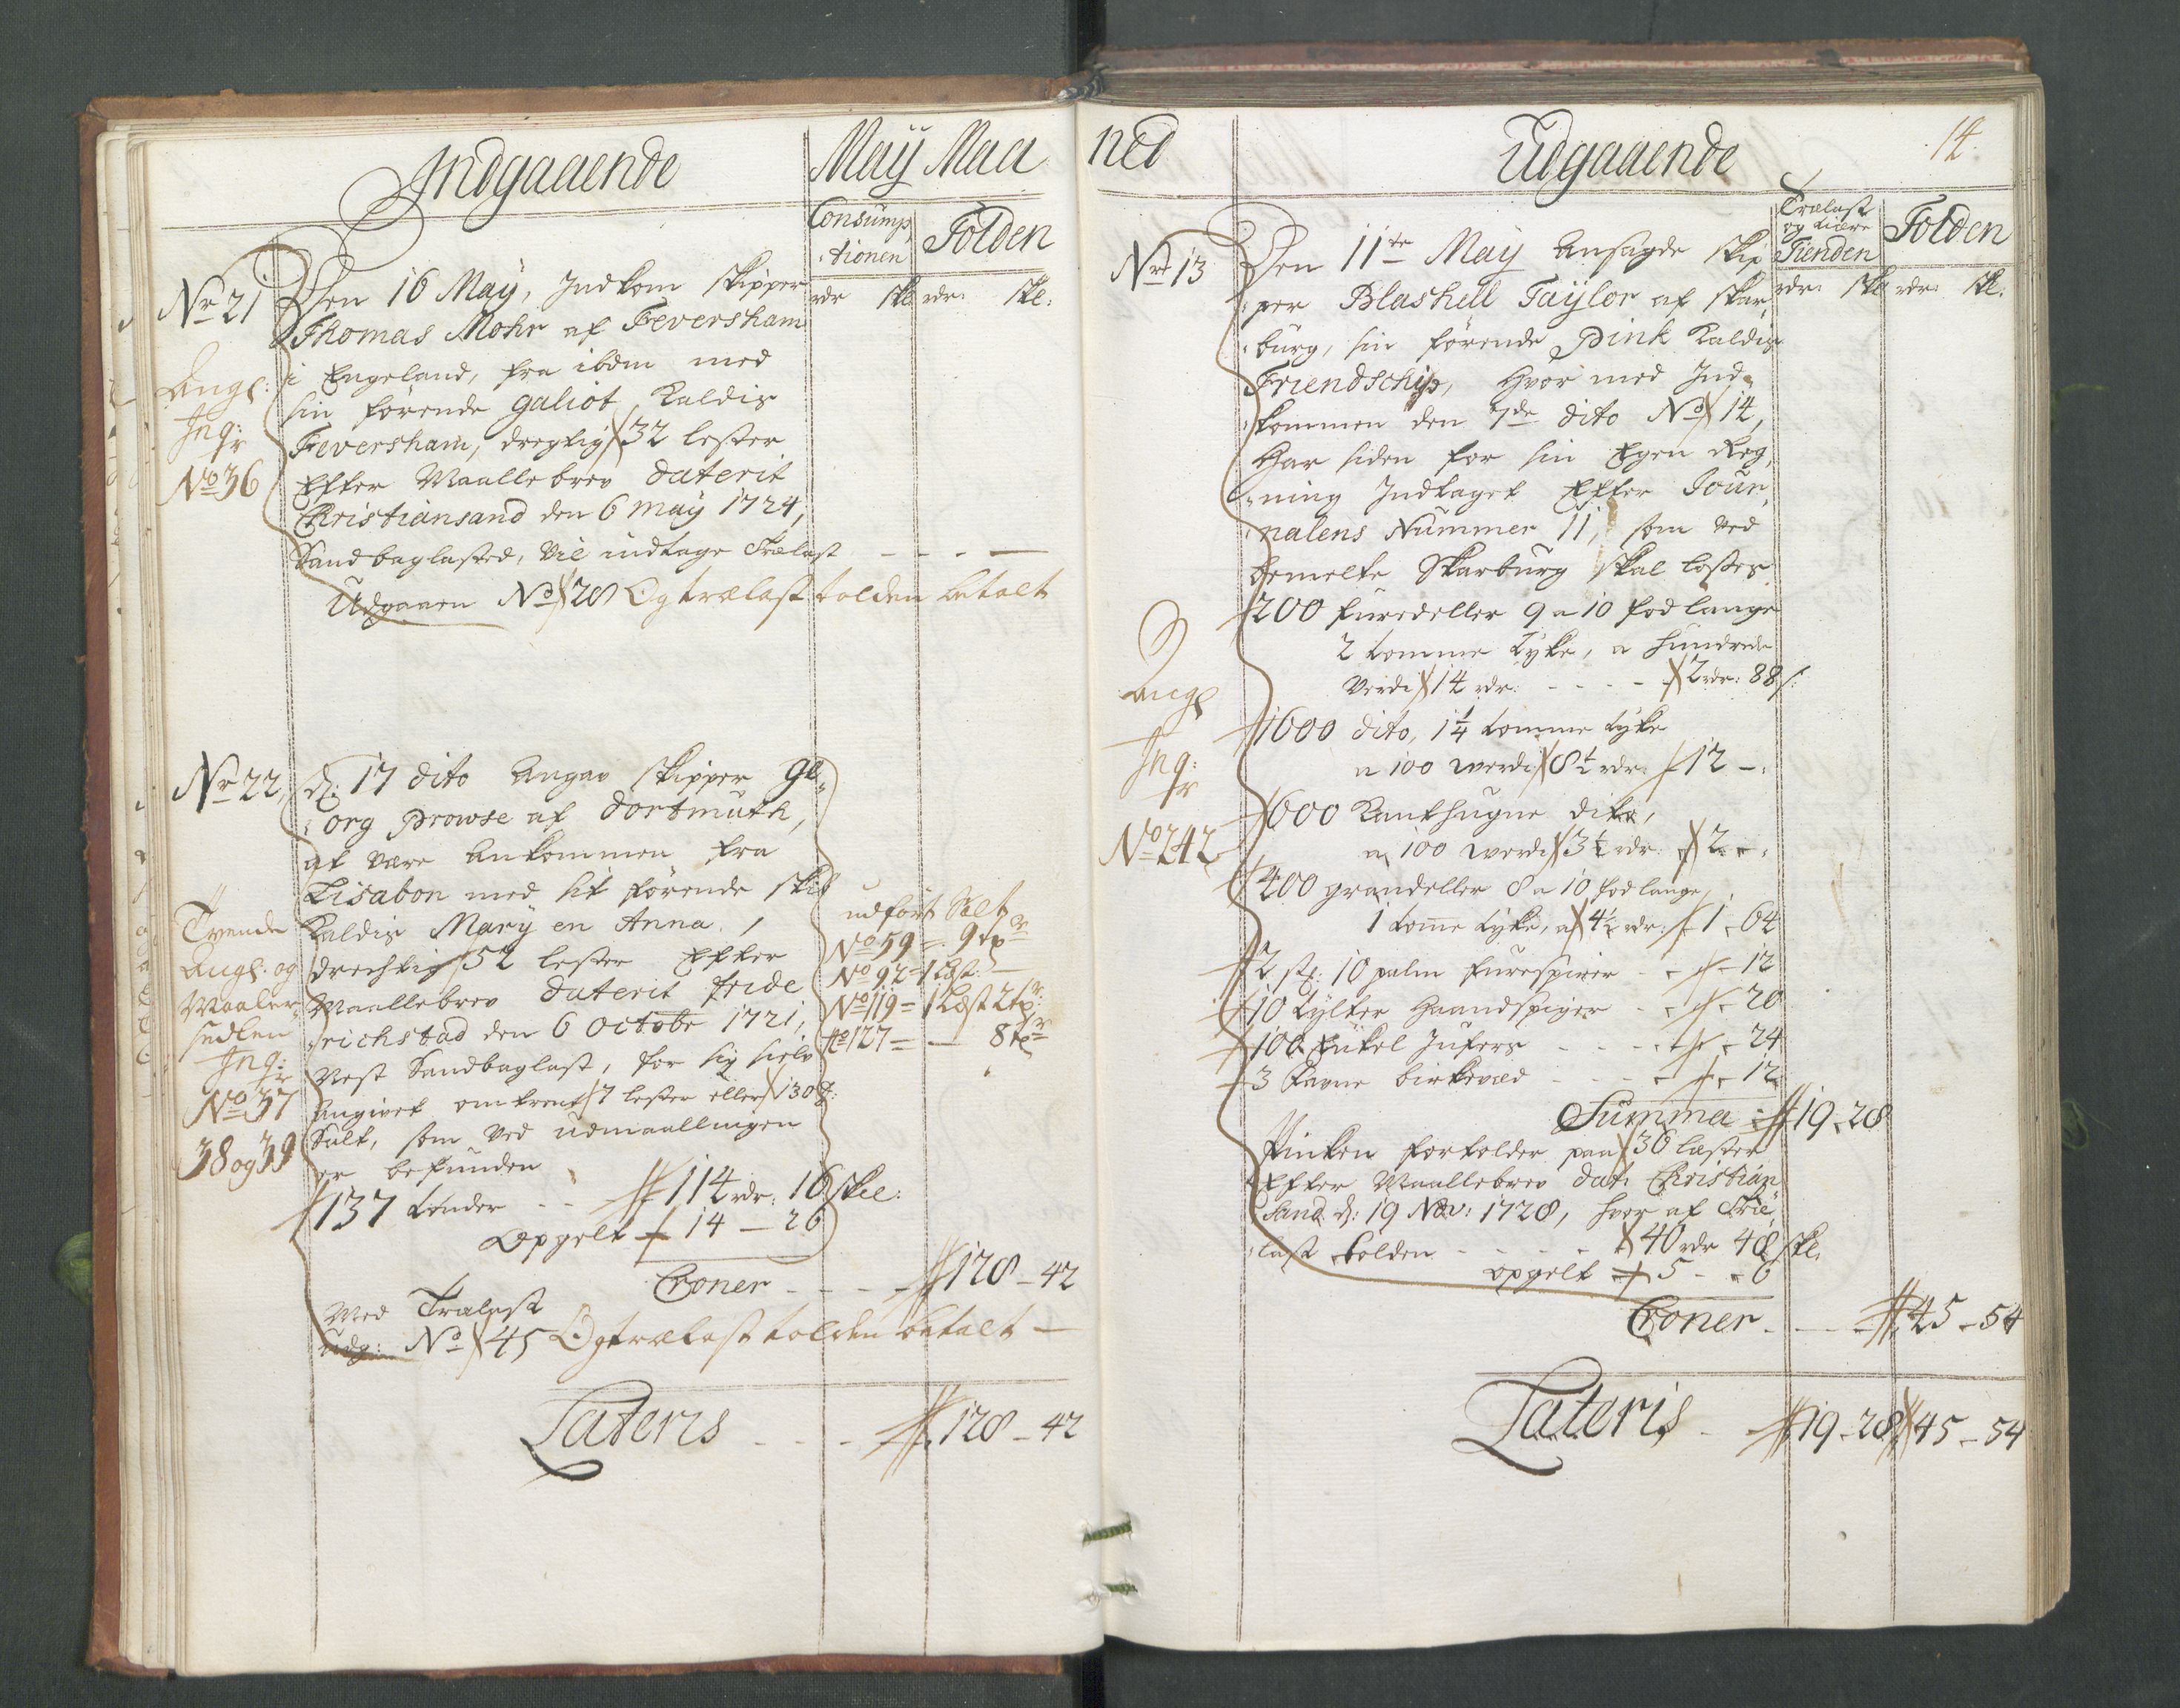 Indgaaende
May Maa
Consump
tionen
Tolden
rdr skl rdr: skl:
Nr 21
Den 16 May, Indkom skipper
Thomas Mohr af Feversham
i Engeland, fra ibdm med
sin förende galiot kaldis
Feversham, dregtig 32 lester
Efter Maallebrev daterit
Christiansand den 6 may 1724,
Sandbaglasted, vil indtage Trælast
Udgaaen No 28 Og trælasttolden betalt
Angl:
Inq:
fr
No 36
Nr 22,
d: 17 dito Angav skipper Ge,,
,,org Prowse af Dortmuth,
at være Ankommen fra
Lisabon med sit förende skib
kaldis Mary en Anna,
drechtig 52 lester Efter
Maallebrev daterit Fride
richstad den 6 Octobr 1721,
Mest Sandbaglast, for sig sielv
Angivet omtrent 7 lester eller 130 t:
Salt, som ved udmaallingen
er befunden
137 tønder - - 114 rdr: 16 skl:
Opgelt 14 - 26
Croner - - - - 128 - 42
Med Trælast
Udg: No 45 Og trælasttolden betalt -
Tvende
Angl: og
Maaler
sedlen
Inq:
fr
No 37
38 og 39
udfört Salt
No 59 = 9 tr
No 92 = 1 Læst: -
No 119 = 1 Læst 2 tr:
No 127 = - 8 tr
Lateris - - - 128 - 42
ned
Udgaaende
14.
Trælast
og
Tienden
Tolden
rdr: skl rdr: skl:
Nr 13
Den 11te May Ansagde skip
,,per Blashell Taylor af Skar,,
,,burg, sin förende Pink kaldis
Friendschip, hvor med Ind,,
,,kommen den 7de dito No 14,
Har siden for sin Egen Reg,,
,,ning Indtaget Efter Jour,,
,,nalens Nummer 11, som ved
bemelte Skarburg skal losses
200 furedeller 9 a 10 fod lange
2 tomme tyke, a Hundrede
Verdi 14 rdr: - - - - 2 rdr: 88 s:
1600 dito, 1 1/4 tomme tyke
a 100 Werdi 8 1/2 rdr: 12 -:
600 Kanthugne dito,
a 100 werdi 3 1/2 rdr: 2 - -:
400 grandeller 8 a 10 fod lange,
1 tomme tyke, a 4 1/2 rdr: 1 - 64
2 st: 10 palm furespirer - - 12
10 tylter Haandspiger - - - 20
100 Enkel Jufers - - - - - 24
3 Favne birkeved - - - - 12
Summa = 19 - 28
Pinken forholder paa 36 læster
Efter Maallebrev dat: Christian
Sand d: 19 Nov: 1728, hvor af Træ,,
,,last tolden - - - - 40 rdr 48 skl:
opgelt = 5 - - 6
Croner - - - - 45 - 54
Angl
Inq:
fr
No 242
Lateris - - 19 - 28, 45 - 54